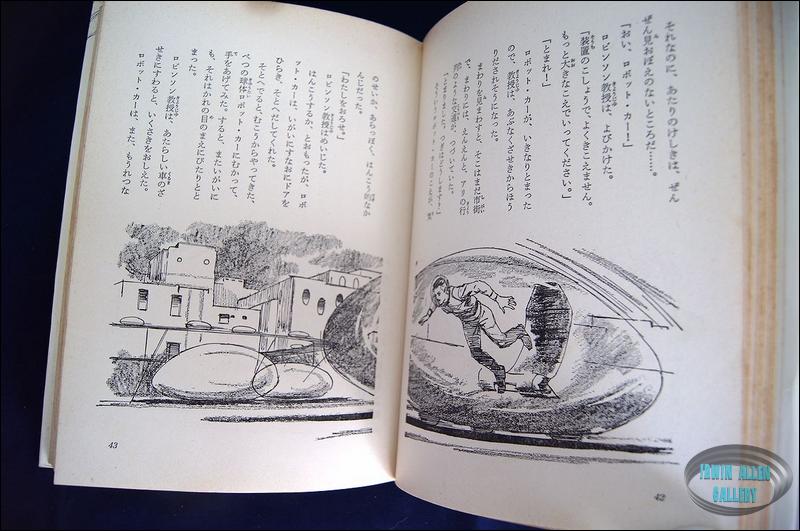 それなのに、あたりのけしきは、ぜん
ぜん見おぼえのないところだ……。
「おい、ロボット・カー！」
ロビンソン教授は、よびかけた。
「装置のこしょうで、よくきこえません。
もっと大きなこえでいってください。」
「とまれ！」
ロボット・カーが、いきなりとまった
ので、教授は、あぶなくざせきからほう
りだされそうになった。
まわりを見まわすと、そこはまだ市街
で、まわりには、えんえんと、アリの行
列のような交通が、つづいていた。
「とまりました。つぎはどうします？」
そういうロボット・カーのこえが、
42
のせいか、あらっぽく、はんこう的なか
んじだった。
「わたしをおろせ。」
ロビンソン教授はめいじた。
はんこうするか、とおもったが、ロボ
ット・カーは、いがいにすなおにドアを
ひらき、そとへだしてくれた。
そとへでると、むこうからやってきた、
べつの球体ロボット・カーにむかって、
手をあげてみた。すると、またいがいに
も、それはかれの目のまえにぴたりとと
まった。
ロビンソン教授は、あたらしい車のざ
せきにすわると、いくさきをおしえた。
ロボット・カーは、また、もうれつな
43
IRWIN ALLEN
GALLERY